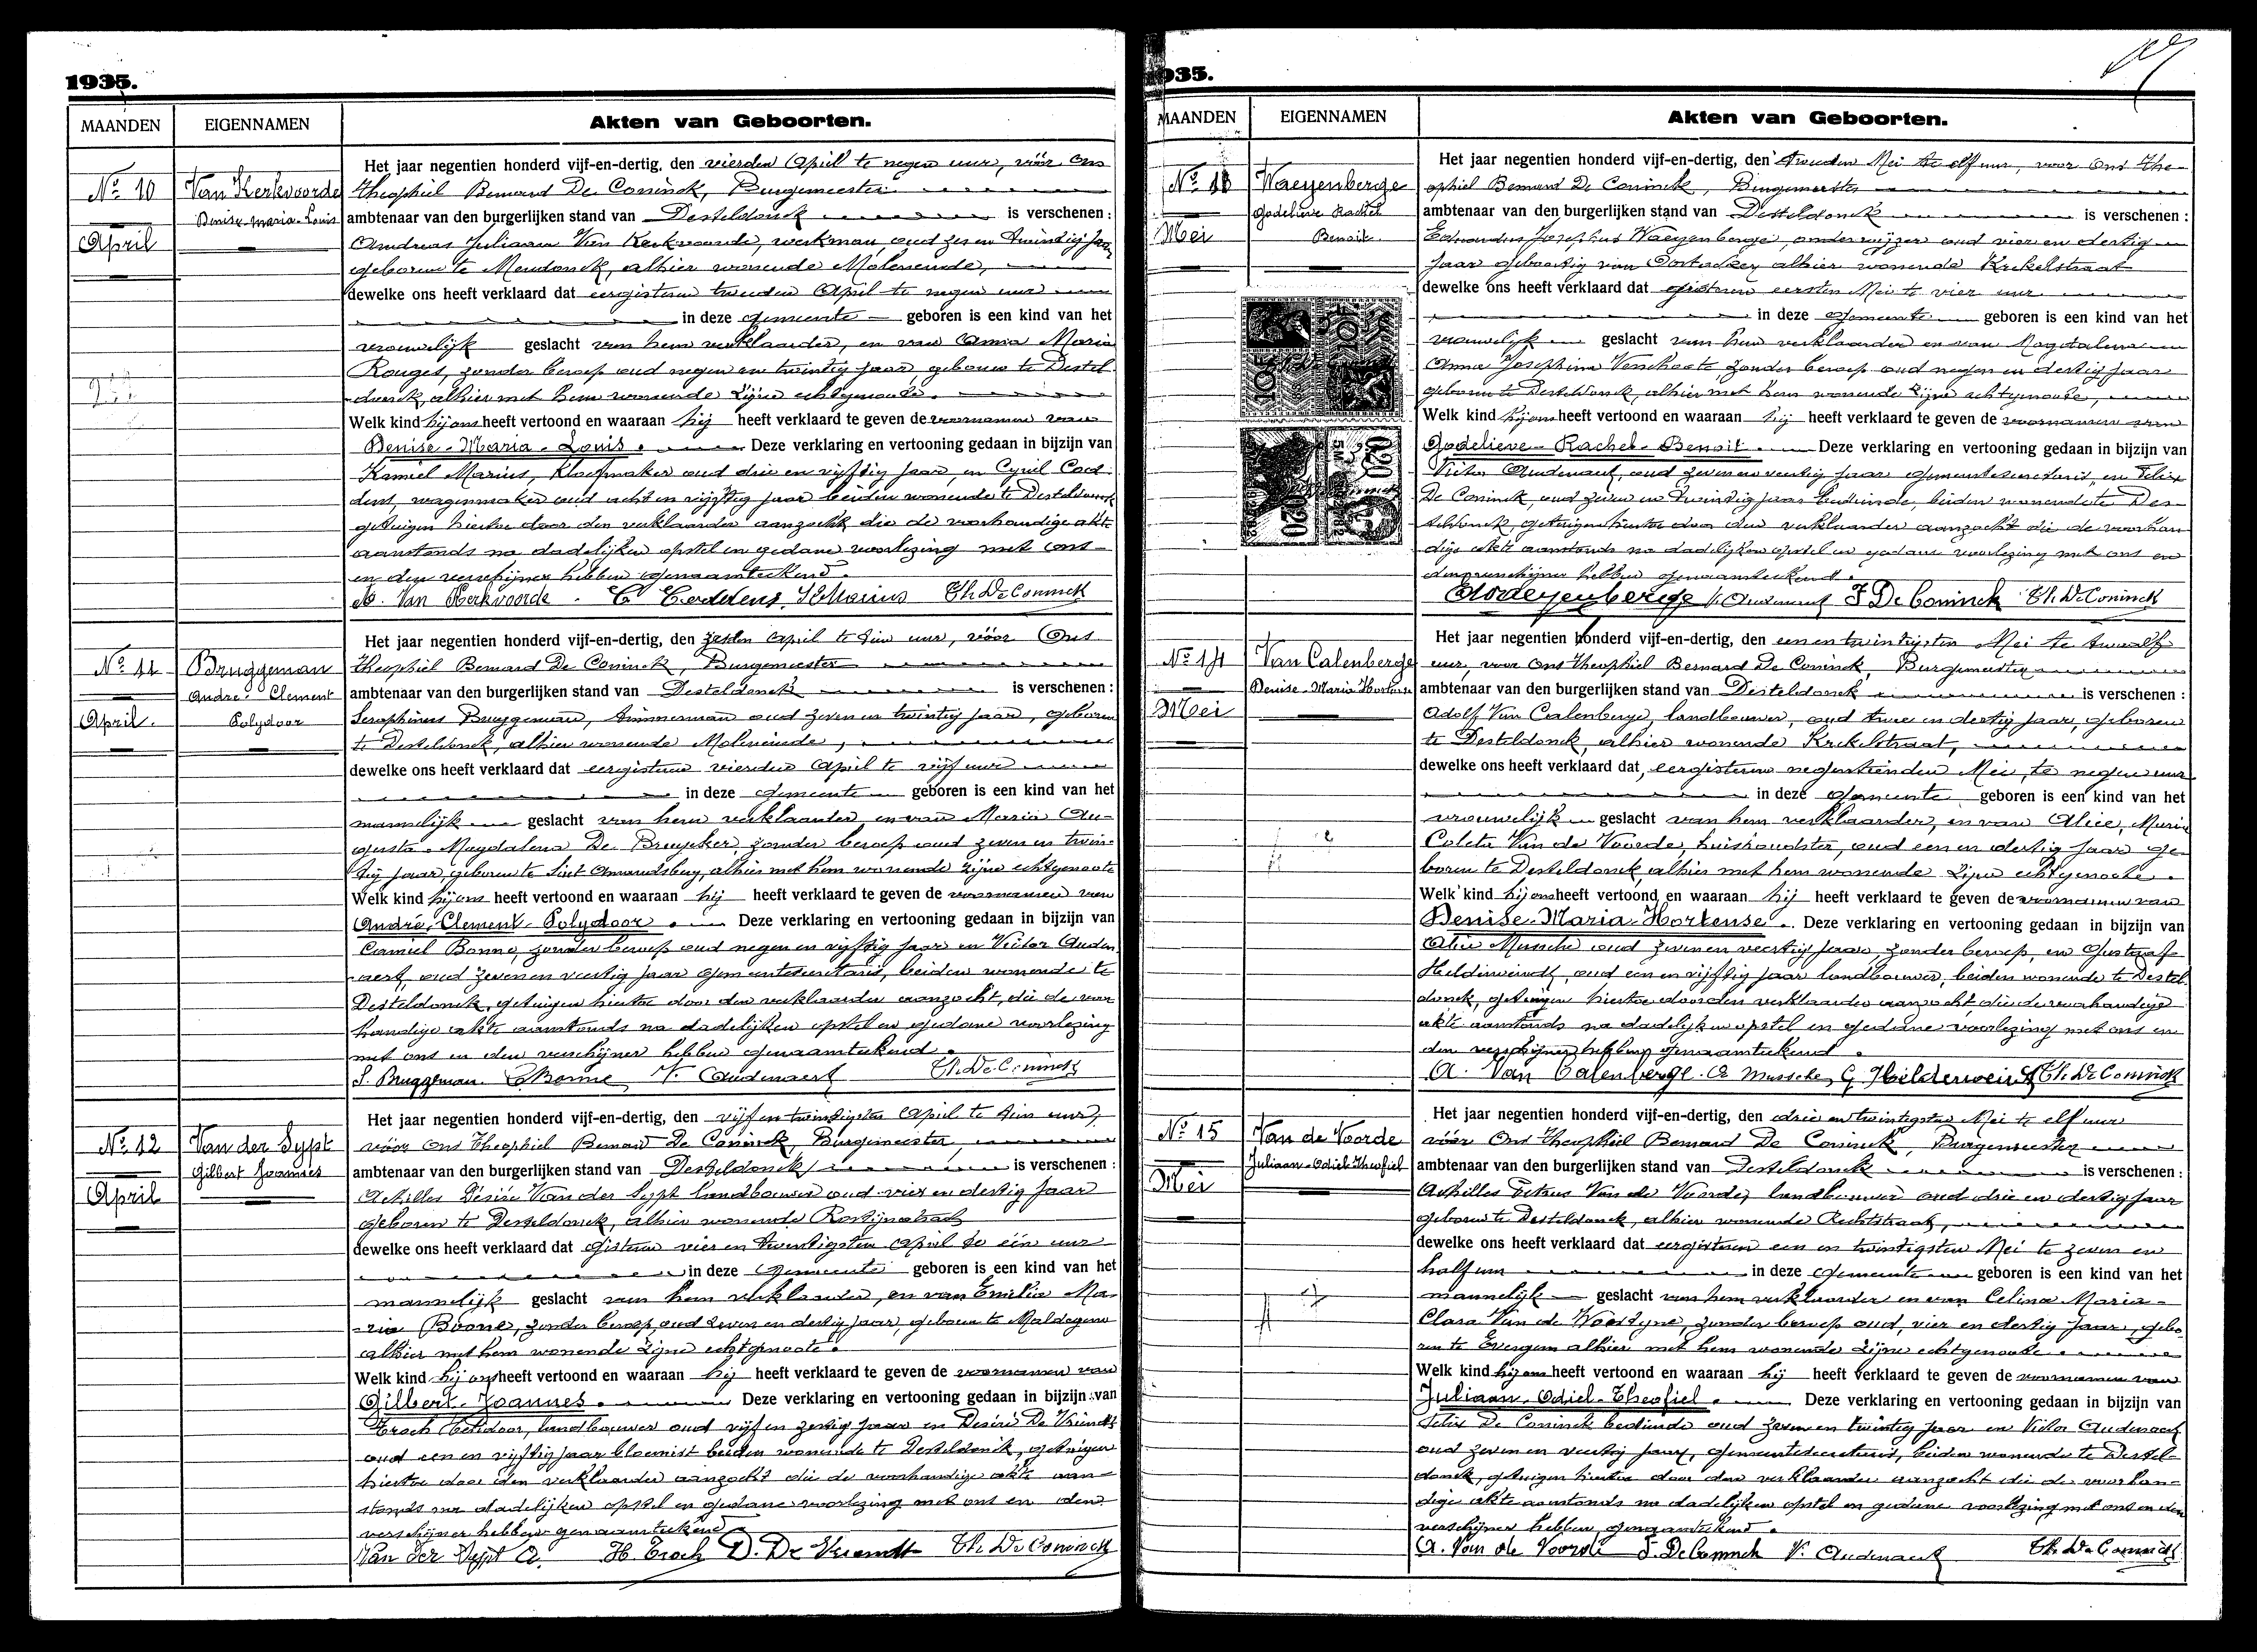 1935.
MAANDEN
EIGENNAMEN
Akten van Geboorten.
Nº 10
April
Van Kerkvoorde
Denise-Maria-Louis
Het jaar negentien honderd vijf-en-dertig, den vierden April te negen uur, vóór Ons
Theophiel Bernard De Coninck, Burgemeester
ambtenaar van den burgerlijken stand van Desteldonck is verschenen :
Andreas Juliaan Van Kerkvoorde, werkman oud zes en twintig jaar
geboren te Mendonck, alhier wonende Moleneinde,
dewelke ons heeft verklaard dat eergisteren tweeden April te negen uur
in deze gemeente geboren is een kind van het
vrouwelijk geslacht van hem verklaarder, en van Anna Maria
Rouges, zonder beroep oud negen en twintig jaar, geboren te Destel
donck, alhier met hem wonende zijne echtgenoote.
Welk kind hij ons heeft vertoond en waaraan hij heeft verklaard te geven de voornamen van
Denise-Maria-Louis. Deze verklaring en vertooning gedaan in bijzijn van
Kamiel Marius, kloefmaker oud drie en vijftig jaar, en Cyriel Cod
dens, wagenmaker oud acht en vijftig jaar beiden wonende te Desteldonck
getuigen hiertoe door den verklaarder aanzocht, die de voorhandige akte
aanstonds na dadelijken opstel en gedane voorlezing met ons
en den verschijner hebben genaamteekend.
A. Van Kerkvoorde C. Coddens K. Marius Th. De Coninck
Nº 11
April.
Bruggeman
André-Clement
Polydoor
Het jaar negentien honderd vijf-en-dertig, den zesden April te tien uur, vóór Ons
Theophiel Bernard De Coninck, Burgemeester
ambtenaar van den burgerlijken stand van Desteldonck is verschenen :
Seraphinus Bruggeman, timmerman oud zeven en twintig jaar, geboren
te Desteldonck, alhier wonende Moleneinde,
dewelke ons heeft verklaard dat eergisteren vierden April te vijf uur
in deze gemeente geboren is een kind van het
mannelijk geslacht van hem verklaarder, en van Maria Au-
gusta-Magdalena De Bruycker, zonder beroep oud zeven en twin-
tig jaar, geboren te Sint Amandsberg, alhier met hem wonende zijne echtgenoote
Welk kind hij ons heeft vertoond en waaraan hij heeft verklaard te geven de voornamen van
André-Clement-Polydoor. Deze verklaring en vertooning gedaan in bijzijn van
Camiel Bonne, zonder beroep oud negen en vijftig jaar en Victor Auden
aert, oud zeven en veertig jaar gemeentesecretaris, beiden wonende te
Desteldonck, getuigen hiertoe door den verklaarder aanzocht, die de voor
handige akte aanstonds na dadelijken opstel en gedane voorlezing
met ons en den verschijner hebben genaamteekend.
S. Bruggeman. C Bonne V. Audenaert Th. De Coninck
Nº 12
April
Van der Sypt
Gilbert Joannes
Het jaar negentien honderd vijf-en-dertig, den vijf en twintigsten April te tien uur,
vóór Ons Theophiel Bernard De Coninck, Burgemeester,
ambtenaar van den burgerlijken stand van Desteldonck is verschenen :
Achilles Désiré Van der Sypt landbouwer oud vier en dertig jaar
geboren te Desteldonck, alhier wonende Rostijnestraat
dewelke ons heeft verklaard dat gisteren vier en twintigsten April te één uur
in deze gemeente geboren is een kind van het
mannelijk geslacht van hem verklaarder, en van Emelie Ma-
ria Boone, zonder beroep, oud zeven en dertig jaar, geboren te Maldegem
alhier met hem wonende zijne echtgenoote.
Welk kind hij ons heeft vertoond en waaraan hij heeft verklaard te geven de voornamen van
Gilbert-Joannes. Deze verklaring en vertooning gedaan in bijzijn van
landbouwer oud vijf en zestig jaar en Desiré De Vriendt
oud een en vijftig jaar bloemist beiden wonende te Desteldonck, getuigen
hiertoe door den verklaarder aanzocht die de voorhandige akte aan-
stonds na dadelijken opstel en gedane voorlezing met ons en den
verschijner hebben genaamteekend.
Van der Sypt A. D. De Vriendt Th. De Coninck
1935.
MAANDEN
EIGENNAMEN
Akten van Geboorten.
Nº 13
Mei
Waeyenberge
Godelieve Rachel
Benoit.
Het jaar negentien honderd vijf-en-dertig, den tweeden Mei te elf uur, voor Ons The-
ophiel Bernard De Coninck, Burgemeester
ambtenaar van den burgerlijken stand van Desteldonck is verschenen :
Edmondus Josephus Waeyenberge, onderwijzer oud vier en dertig
jaar geboortig van Oostacker alhier wonende Krekelstraat
dewelke ons heeft verklaard dat gisteren eersten Mei te vier uur
in deze gemeente geboren is een kind van het
vrouwelijk geslacht van hem verklaarder en van Magdalena
Anna Josephina Verschoote, zonder beroep oud negen en dertig jaar
geboren te Desteldonck, alhier met hem wonende zijne echtgenoote,
Welk kind hij ons heeft vertoond en waaraan hij heeft verklaard te geven de voornamen van
Godelieve-Rachel-Benoit. Deze verklaring en vertooning gedaan in bijzijn van
Victor Audenaert, oud zeven en veertig jaar gemeentesecretaris, en Felix
De Coninck, oud zeven en twintig jaar bediende, beiden wonende te Des-
teldonck, getuigen hiertoe door den verklaarder aanzocht die de voorhan
dige akte aanstonds na dadelijken opstel en gedane voorlezing met ons en
den verschijner hebben genaamteekend.
Waeyenberge V. Audenaert F De Coninck Th. De Coninck
10F
10F
0.20
0.20
Nº 14
Mei
Van Calenberge
Denise-Maria Hortense
Het jaar negentien honderd vijf-en-dertig, den een en twintigsten Mei te twaalf
uur, voor Ons Theophiel Bernard De Coninck, Burgemeester
ambtenaar van den burgerlijken stand van Desteldonck is verschenen :
Adolf Van Calenberge, landbouwer, oud twee en dertig jaar, geboren
te Desteldonck, alhier wonende Krekelstraat,
dewelke ons heeft verklaard dat, eergisteren negentienden Mei, te negen uur
in deze gemeente geboren is een kind van het
vrouwelijk geslacht van hem verklaarder, en van Alice, Maria
Coleta Van de Voorde, huishoudster, oud een en dertig jaar ge-
boren te Desteldonck alhier met hem wonende zijne echtgenoote.
Welk kind hij ons heeft vertoond en waaraan hij heeft verklaard te geven de voornamen van
Denise-Maria-Hortense. Deze verklaring en vertooning gedaan in bijzijn van
Alice Mussche oud zeven en veertig jaar, zonder beroep, en Gustaaf
Helderweirdt, oud een en vijftig jaar landbouwer, beiden wonende te Destel
donck, getuigen hiertoe door den verklaarder aanzocht, die de voorhandige
akte aanstonds na dadelijken opstel en gedane voorlezing met ons en
den verschijner hebben genaamteekend.
A. Van Calenberge. A Mussche, G Helderweirdt Th. De Coninck
Nº 15
Mei
Van de Voorde
Juliaan-Odiel-Theofiel
Het jaar negentien honderd vijf-en-dertig, den drie en twintigsten Mei te elf uur
vóór Ons Theophiel Bernard De Coninck, Burgemeester
ambtenaar van den burgerlijken stand van Desteldonck is verschenen :
Achilles Petrus Van de Voorde, landbouwer oud drie en dertig jaar
geboren te Desteldonck, alhier wonende Rechtstraat,
dewelke ons heeft verklaard dat eergisteren een en twintigsten Mei te zeven en
half uur in deze gemeente geboren is een kind van het
mannelijk geslacht van hem verklaarder en van Celina Maria-
Clara Van de Woestyne, zonder beroep oud, vier en dertig jaar, gebo
ren te Evergem alhier met hem wonende zijne echtgenoote.
Welk kind hij ons heeft vertoond en waaraan hij heeft verklaard te geven de voornamen van
Juliaan-Odiel-Theofiel. Deze verklaring en vertooning gedaan in bijzijn van
Felix De Coninck bediende oud zeven en twintig jaar en Victor Audenaert
oud zeven en veertig jaar, gemeentesecretaris, beiden wonende te Destel-
donck, getuigen hiertoe door den verklaarder aanzocht die de voorhan-
dige akte aanstonds na dadelijken opstel en gedane voorlezing met ons en den
verschijner hebben genaamteekend.
A. Van de Voorde F. De Coninck V. Audenaert Th. De Coninck